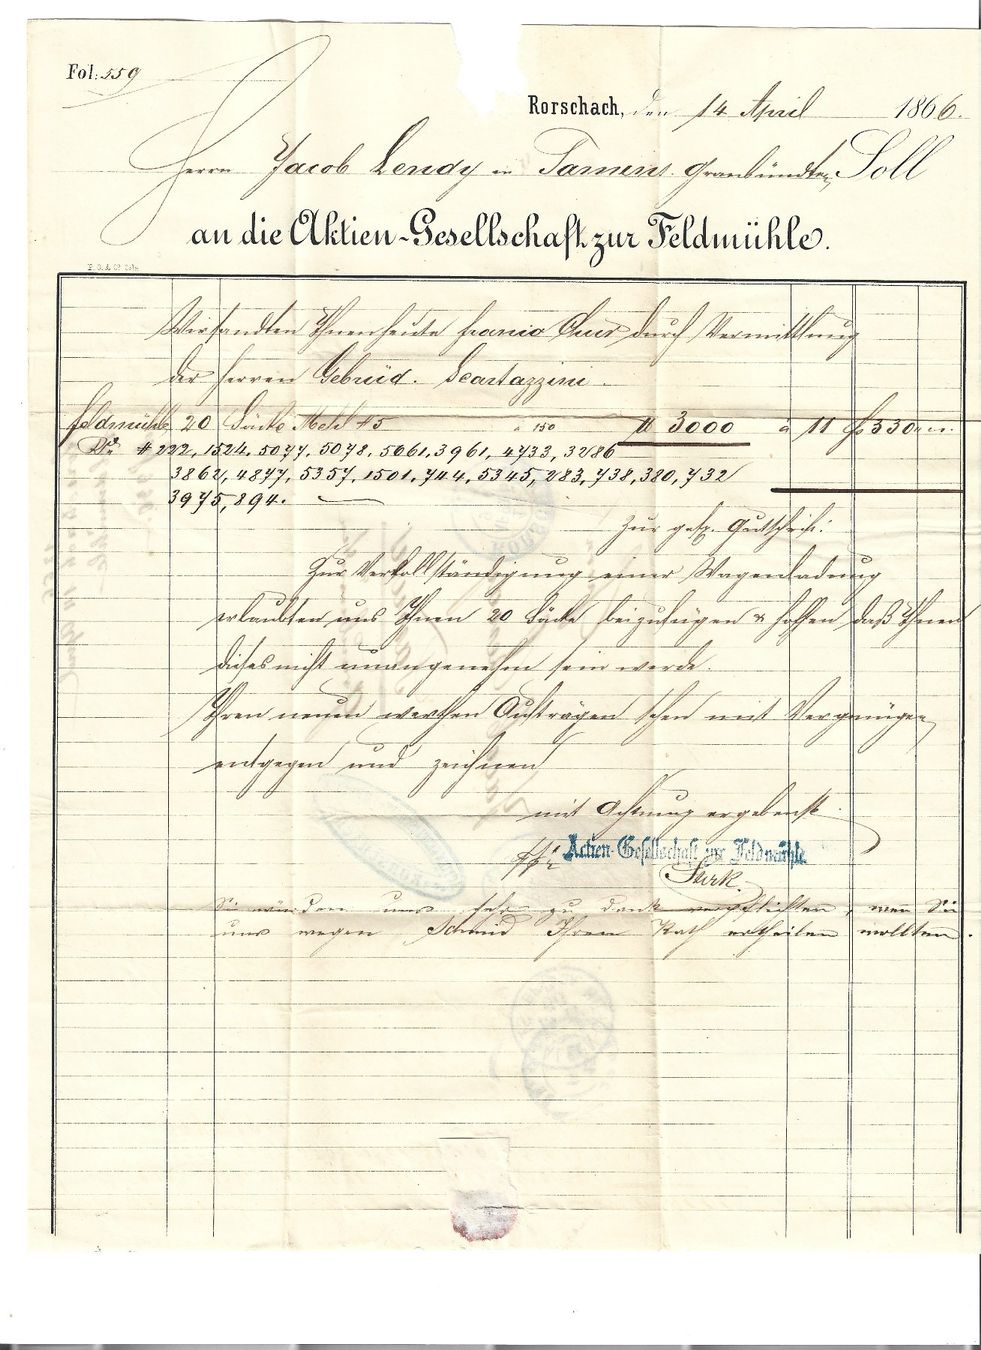 Fol: 559
Rorschach, den 14 April 1866.
Herrn Jacob Lendy in Tamins Graubündten, Soll
an die Aktien-Gesellschaft zur Feldmühle.
Versandten Ihnen heute franco Chur durch Vermittlung
der Herren Gebrüd. Scartazzini.
Feldmühle 20 Säcke Mehl #5 à 150 ℔ 3000 à 11 fs 330
# 222, 1524, 5077, 5078, 5661, 3961, 4733, 3286
3862, 4877, 5357, 1501, 744, 5345, 283, 738, 380, 732
3975, 894.
Zur gefl. Gutschrift:
Zur Vervollständigung einer Wagenladung
erlaubten uns Ihnen 20 Säcke beizufügen & hoffen daß Ihnen
dieses nicht unangenehm sein werde.
Ihren neuen werthen Aufträgen sehen mit Vergnügen
entgegen und zeichnen
mit Achtung ergebenst
ppa Actien-Gesellschaft zur Feldmühle.
Sie würden uns sehr zu Dank verpflichten, wenn Sie
uns wegen Schmid Ihren Rath ertheilen wollten.